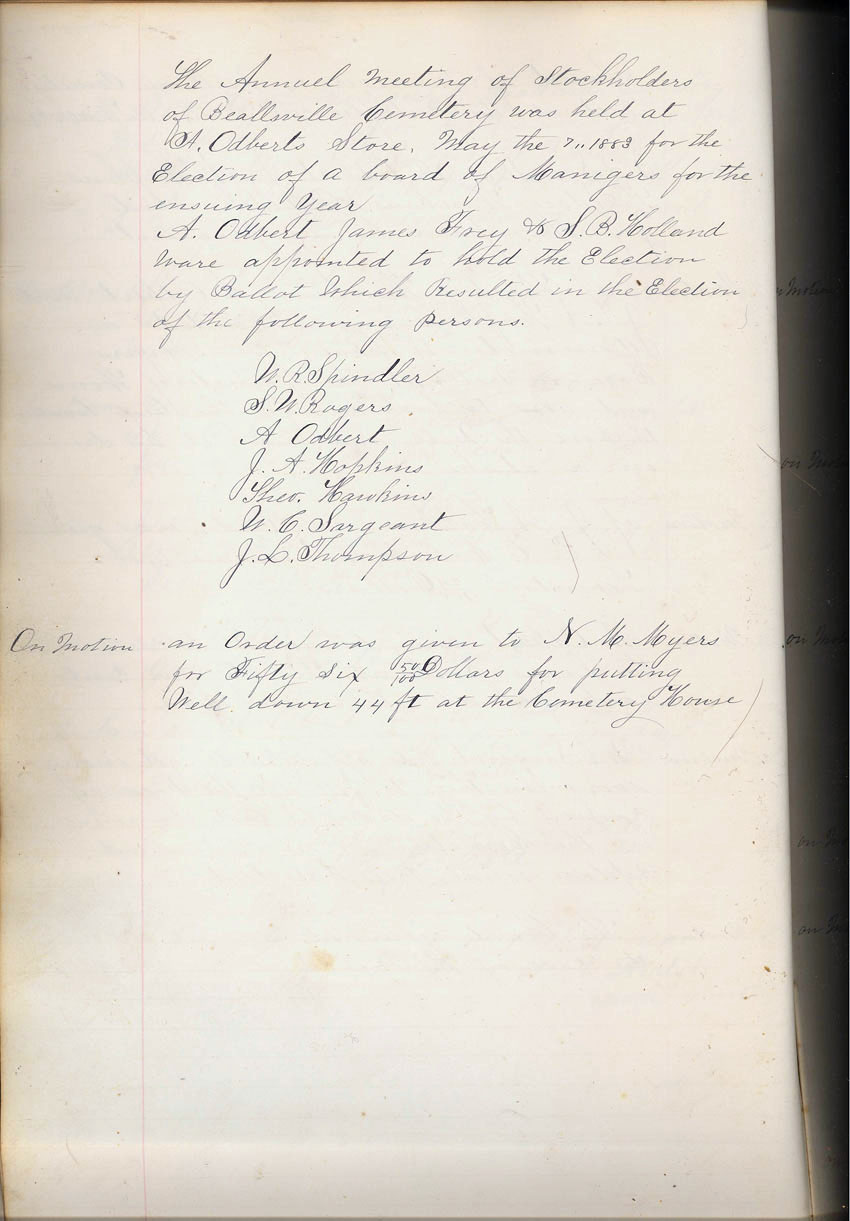 The Annuel Meeting of Stockholders
of Beallsville Cemetery was held at
A. Odberts Store. May the 7,, 1883 for the
Election of a board of Manigers for the
ensuing Year
A. Odbert James Frey & S. B. Holland
Ware appointed to hold the Election
by Ballot Which Resulted in the Election
of the following Persons.
W. R. Spindler
S. W. Rogers
A Odbert
J. A. Hopkins
Theo. Hawkins
W. C. Sargeant
J. L. Thompson
On Motion an Order was given to N. M. Myers
for Fifty Six 50/100 Dollars for putting
Well down 44 ft at the Cemetery House
on Motion
on Motion
on
on